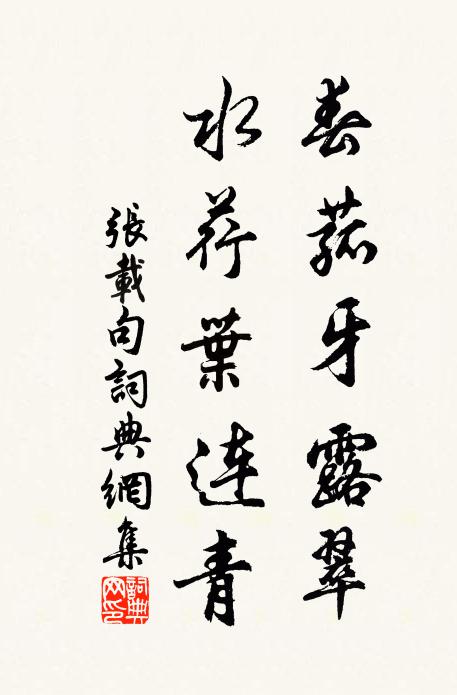 春菰牙露翠
水荇葉連青
張載句詞典網集
詞典网印